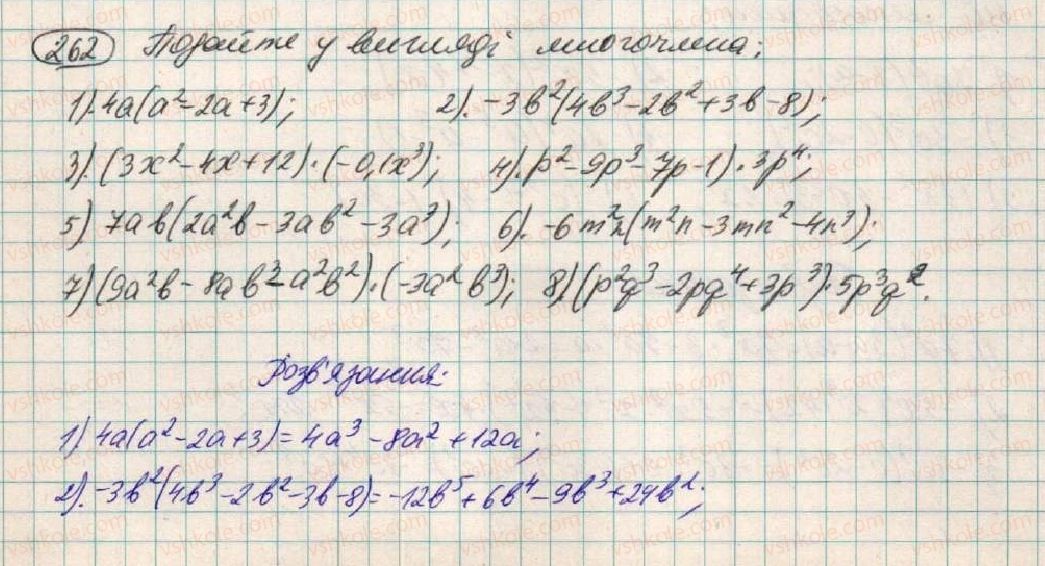 262 Подайте у вигляді многочлена:
1). 4a(a²-2a+3); 2). -3b²(4b³-2b²+3b-8);
3). (3x²-4x+12)·(-0,1x³); 4). p²-9p³-7p-1)·3p⁴;
5) 7ab(2a²b-3ab²-3a³); 6). -6m²n(m²n-3mn²-4n³);
7) (9a²b-8ab³-a²b²)·(-3a²b³); 8) (p²q³-2pq⁴+3p³)·5p³q².
Розв'язання:
1) 4a(a²-2a+3)=4a³-8a²+12a;
2). -3b²(4b³-2b²-3b-8)=-12b⁵+6b⁴-9b³+24b²;